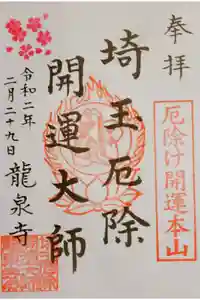 奉拝
厄除け開運本山
埼玉厄除
開運大師
令和二年
二月二十九日
龍泉寺